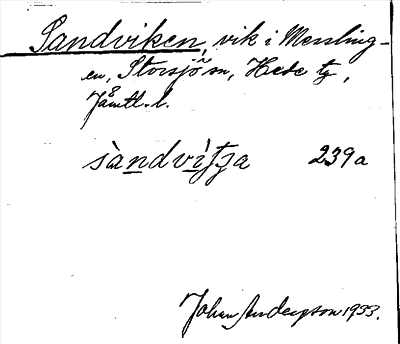 Sandviken, vik i Messling-
en, Storsjö sn, Hede tg,
Jämtl. l.
sàndvìtʃa 239a
Johan Anderson 1933.